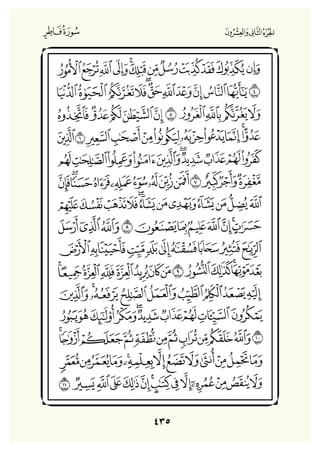 الجُزْءُ الثَّانِي وَالْعِشْرُونَ سُورَةُ فَاطِرٍ
وَإِن يُكَذِّبُوكَ فَقَدْ كُذِّبَتْ رُسُلٌ مِّن قَبْلِكَ ۚ وَإِلَى ٱللَّهِ تُرْجَعُ ٱلْأُمُورُ
٤ يَٰٓأَيُّهَا ٱلنَّاسُ إِنَّ وَعْدَ ٱللَّهِ حَقٌّ ۖ فَلَا تَغُرَّنَّكُمُ ٱلْحَيَوٰةُ ٱلدُّنْيَا
وَلَا يَغُرَّنَّكُم بِٱللَّهِ ٱلْغَرُورُ ٥ إِنَّ ٱلشَّيْطَٰنَ لَكُمْ عَدُوٌّ فَٱتَّخِذُوهُ
عَدُوًّا ۚ إِنَّمَا يَدْعُوا۟ حِزْبَهُۥ لِيَكُونُوا۟ مِنْ أَصْحَٰبِ ٱلسَّعِيرِ ٦ ٱلَّذِينَ
كَفَرُوا۟ لَهُمْ عَذَابٌ شَدِيدٌ ۖ وَٱلَّذِينَ ءَامَنُوا۟ وَعَمِلُوا۟ ٱلصَّٰلِحَٰتِ لَهُم
مَّغْفِرَةٌ وَأَجْرٌ كَبِيرٌ ٧ أَفَمَن زُيِّنَ لَهُۥ سُوٓءُ عَمَلِهِۦ فَرَءَاهُ حَسَنًا ۖ فَإِنَّ
ٱللَّهَ يُضِلُّ مَن يَشَآءُ وَيَهْدِى مَن يَشَآءُ ۖ فَلَا تَذْهَبْ نَفْسُكَ عَلَيْهِمْ
حَسَرَٰتٍ ۚ إِنَّ ٱللَّهَ عَلِيمٌۢ بِمَا يَصْنَعُونَ ٨ وَٱللَّهُ ٱلَّذِىٓ أَرْسَلَ
ٱلرِّيَٰحَ فَتُثِيرُ سَحَابًا فَسُقْنَٰهُ إِلَىٰ بَلَدٍ مَّيِّتٍ فَأَحْيَيْنَا بِهِ ٱلْأَرْضَ
بَعْدَ مَوْتِهَا ۚ كَذَٰلِكَ ٱلنُّشُورُ ٩ مَن كَانَ يُرِيدُ ٱلْعِزَّةَ فَلِلَّهِ ٱلْعِزَّةُ جَمِيعًا ۚ
إِلَيْهِ يَصْعَدُ ٱلْكَلِمُ ٱلطَّيِّبُ وَٱلْعَمَلُ ٱلصَّٰلِحُ يَرْفَعُهُۥ ۚ وَٱلَّذِينَ
يَمْكُرُونَ ٱلسَّيِّـَٔاتِ لَهُمْ عَذَابٌ شَدِيدٌ ۖ وَمَكْرُ أُو۟لَٰٓئِكَ هُوَ يَبُورُ
١٠ وَٱللَّهُ خَلَقَكُم مِّن تُرَابٍ ثُمَّ مِن نُّطْفَةٍ ثُمَّ جَعَلَكُمْ أَزْوَٰجًا ۚ
وَمَا تَحْمِلُ مِنْ أُنثَىٰ وَلَا تَضَعُ إِلَّا بِعِلْمِهِۦ ۚ وَمَا يُعَمَّرُ مِن مُّعَمَّرٍ
وَلَا يُنقَصُ مِنْ عُمُرِهِۦٓ إِلَّا فِى كِتَٰبٍ ۚ إِنَّ ذَٰلِكَ عَلَى ٱللَّهِ يَسِيرٌ ١١
٤٣٥